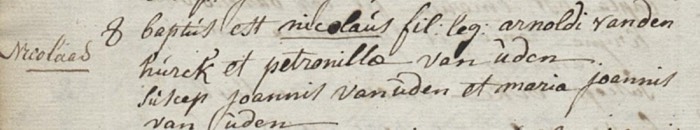 Nicolaas
8 baptus est nicolaús fil: leg: arnoldi vanden
húrck et petronillæ van úden.
súscep joannis van úden et maria joannis
van úden